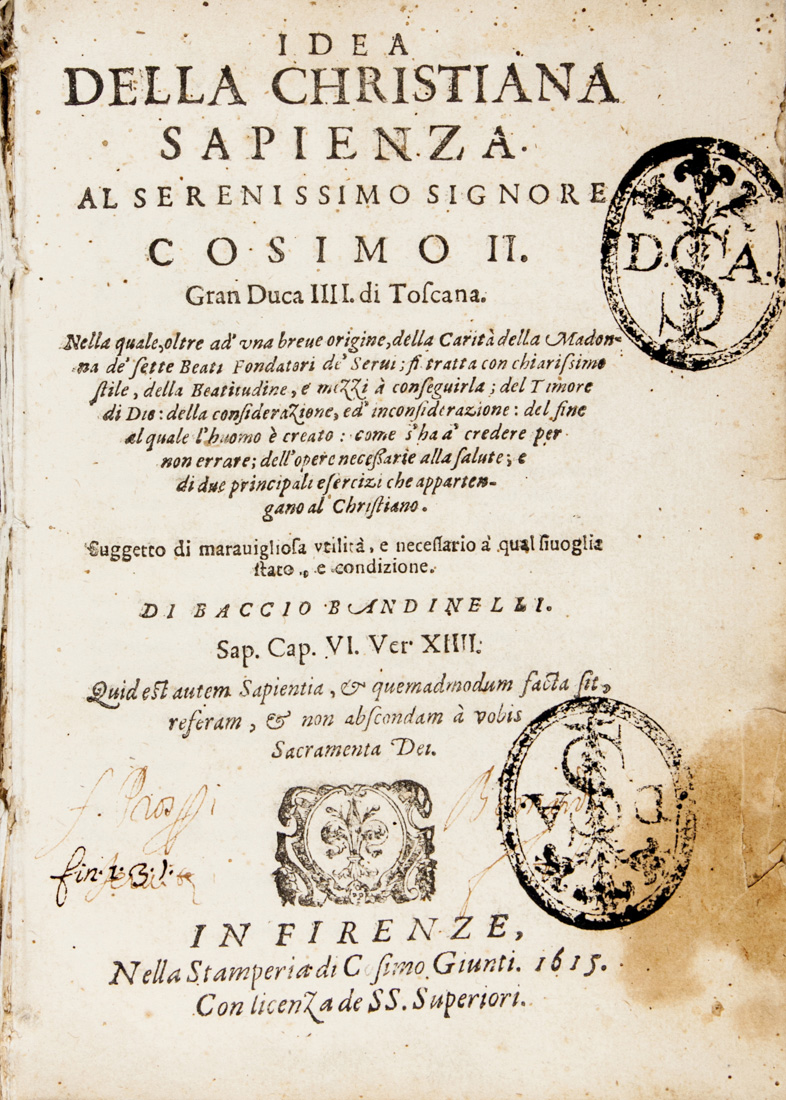 IDEA
DELLA CHRISTIANA
SAPIENZA.
AL SERENISSIMO SIGNORE
COSIMO II.
Gran Duca IIII. di Toſcana.
Nella quale, oltre ad' vna breue origine, della Carità della Madon-
na de' ſette Beati Fondatori de' Serui; ſi tratta con chiariſsimo
ſtile, della Beatitudine, e mezzi à conſeguirla; del Timore
di Dio: della conſiderazione, ed' inconſiderazione: del fine
al quale l'huomo è creato: come s'ha a' credere per
non errare; dell'opere neceſſarie alla ſalute; e
di due principali eſercizi che apparten-
gano al Chriſtiano.
Suggetto di marauiglioſa vtilità, e neceſſario a' qual ſiuoglia
ſtato, e condizione.
DI BACCIO BANDINELLI.
Sap. Cap. VI. Ver XIIII.
Quid eſt autem Sapientia, & quemadmodum facta ſit,
referam, & non abſcondam à vobis
Sacramenta Dei.
D. S. A.
IN FIRENZE,
Nella Stamperia di Coſimo Giunti. 1615.
Con licenza de SS. Superiori.